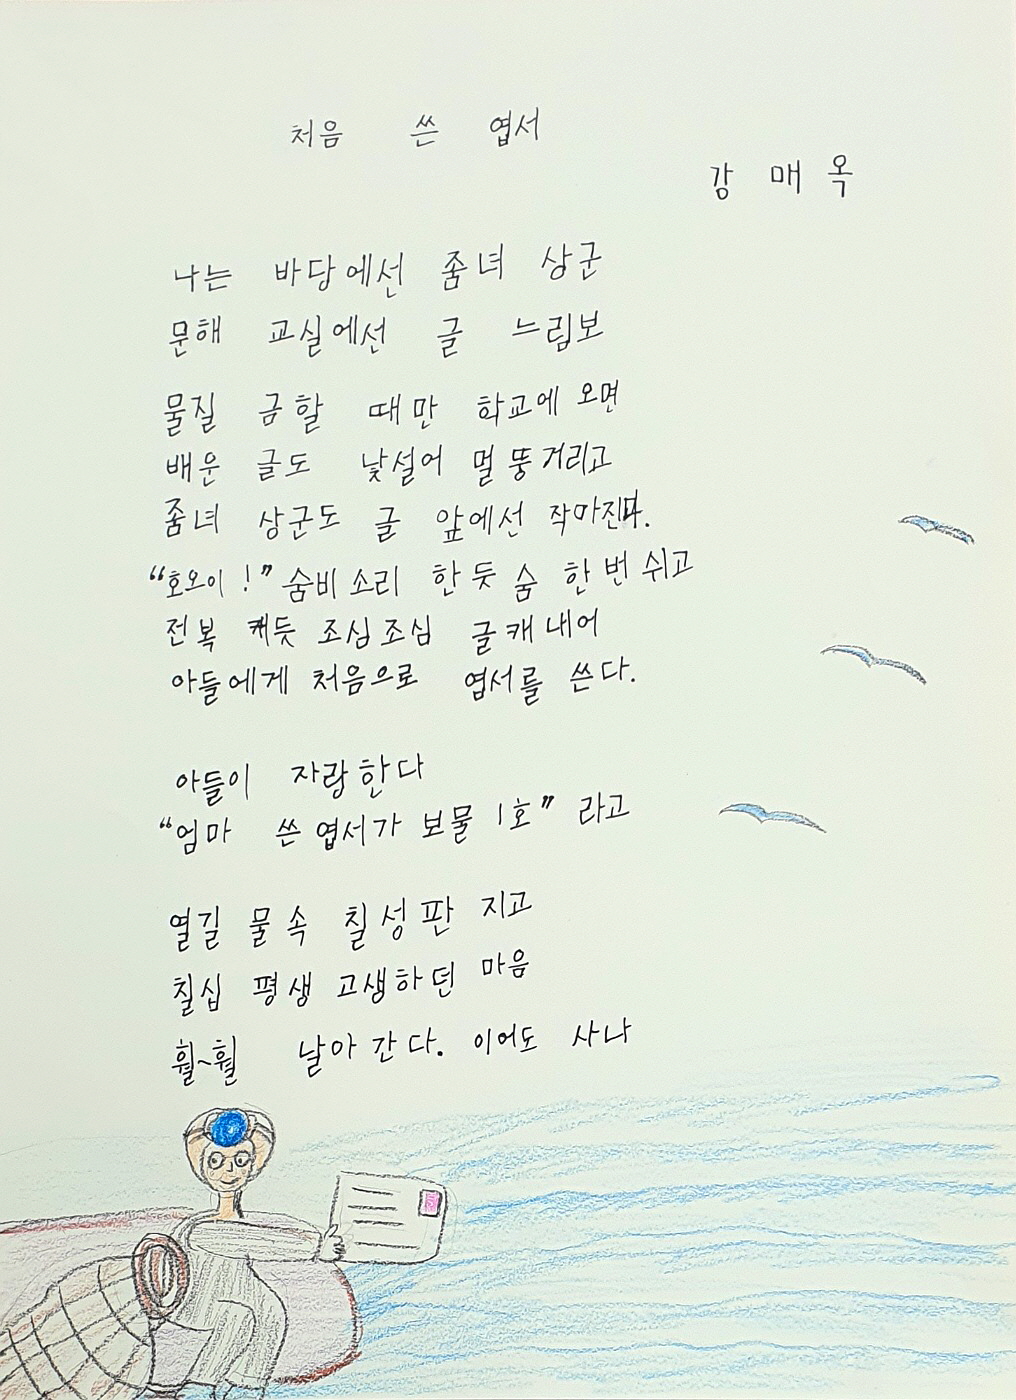 처음 쓴 엽서
강매옥
나는 바당에선 좀녀 상군
문해 교실에선 글 느림보
물질 금할 때만 학교에 오면
배운 글도 낯설어 멀뚱거리고
좀녀 상군도 글 앞에선 작아진다.
“호오이!” 숨비소리 한 듯 숨 한번 쉬고
전복 캐듯 조심조심 글 캐내어
아들에게 처음으로 엽서를 쓴다.
아들이 자랑한다
“엄마 쓴 엽서가 보물 1호” 라고
열길 물속 칠성판 지고
칠십 평생 고생하던 마음
훨~훨 날아간다. 이어도 사나